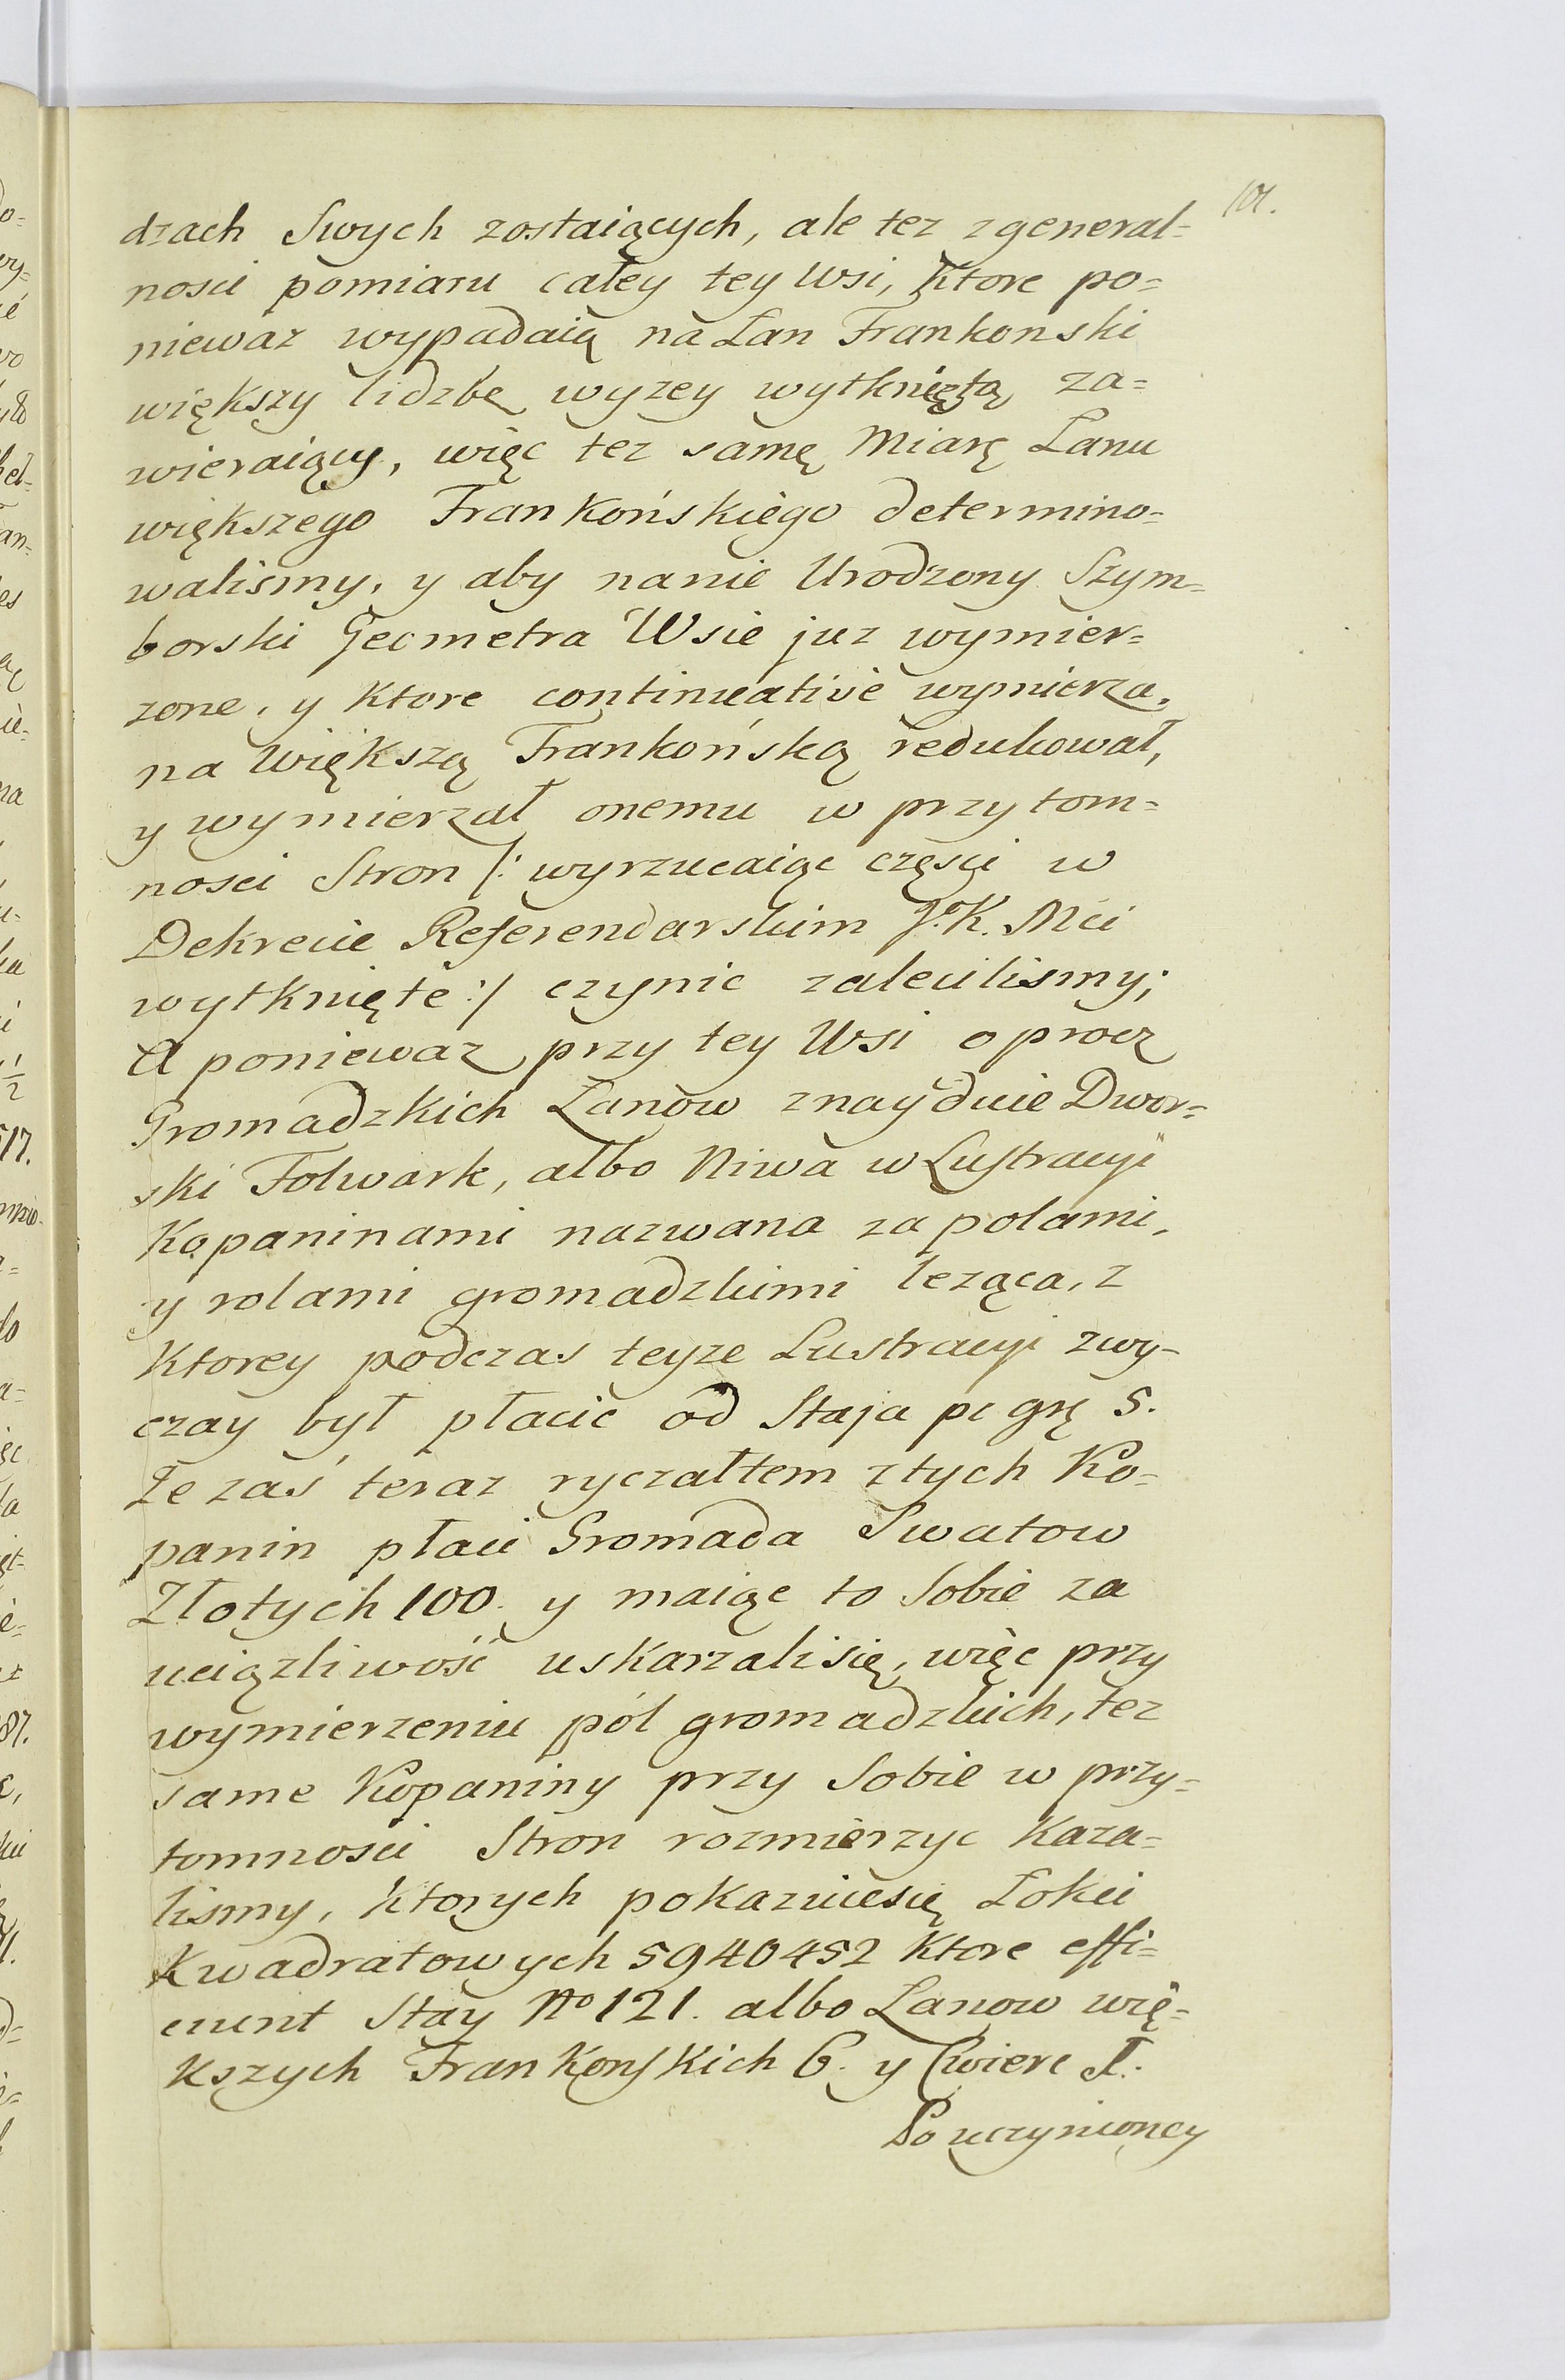 101.
drach Swych zostaiących, ale tez z general=
nosci pomiaru całey tey Wsi, Ktore po=
niewaz wypadaią na Łan Frankonski
większy lidzbę wyzey wytkniętą za=
wieraiący, więc tez samę Miarę Łanu
większego Frankońskiego determino=
walismy, y aby nanie Urodzony Szym=
borski Geometra Wsie juz wymier=
zone, y Ktore continuative wymierza,
na Większą Frankońską redukował,
y wymierzał onemu w przytom=
nosci Stron /: wyrzucaiąc części w
Dekrecie Referendarskim J. K. Mci
wytknięte :/ czynic zalecilismy;
A poniewaz przy tey Wsi oprocz
Gromadzkich Łanow znayduie Dwor=
ski Folwark, albo Niwa w Lustracyi
Kopaninami nazwana za polami,
y rolami gromadzkimi leząca, z
Ktorey podczas teyze Lustracyi zwy-
czay był płacic od Staja po grę 5.
Ze zaś teraz ryczałtem z tych Ko-
panin płaci Gromada Swatow
Złotych 100. y maiąc to Sobie za
uciązliwość uskarzali się, więc przy
wymierzeniu pól gromadzkich, tez
same Kopaniny przy Sobie w przy=
tomnosci Stron rozmierzyc Kaza=
lismy, Ktorych pokazuiesię Łokci
Kwadratowych 5940452 Ktore effi=
ciunt Stay No 121. albo Łanow wię=
Kszych FranKonsKich 6. y Cwierc 1.
Po uczynioney